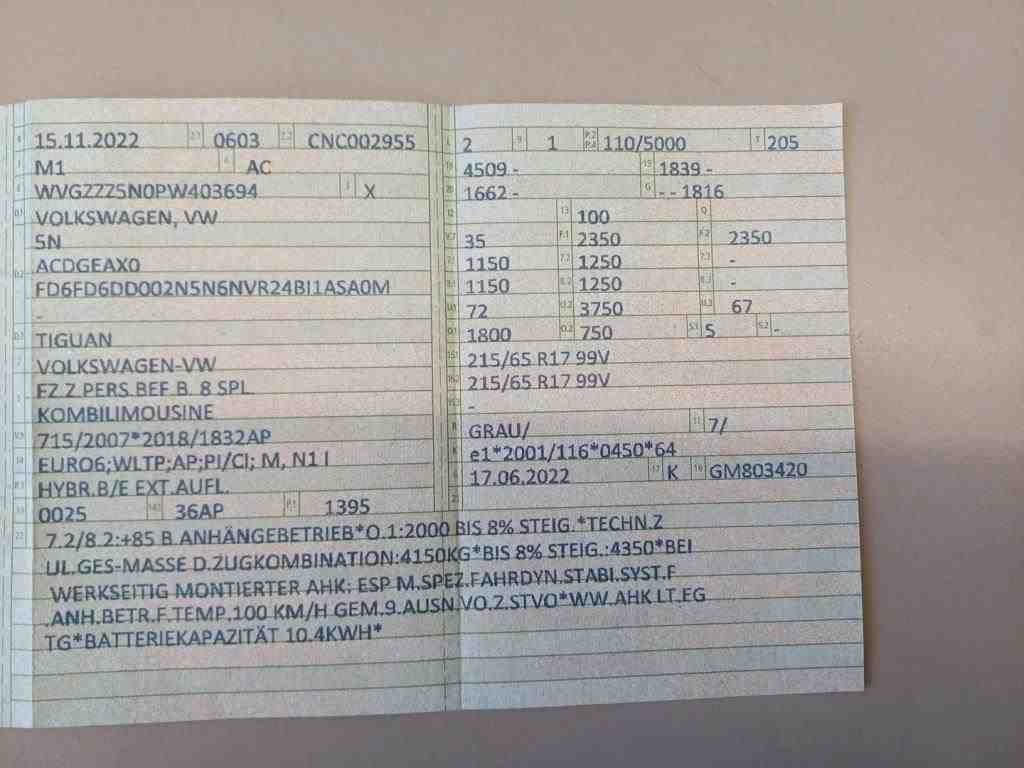 15.11.2022 0603 CNC002955
M1 AC
WVGZZZ5N0PW403694 X
VOLKSWAGEN, VW
5N
ACDGEAX0
FD6FD6DD002N5N6NVR24BI1ASA0M
-
TIGUAN
VOLKSWAGEN-VW
FZ.Z.PERS.BEF.B. 8 SPL.
KOMBILIMOUSINE
715/2007*2018/1832AP
EURO6;WLTP;AP;PI/CI; M, N1 I
HYBR.B/E EXT.AUFL.
0025 36AP 1395
2 1 110/5000 205
4509 - 1839 -
1662 - - - 1816
100
35 2350 2350
1150 1250 -
1150 1250 -
72 3750 67
1800 750 5 -
215/65 R17 99V
215/65 R17 99V
-
GRAU/ 7/
e1*2001/116*0450*64
17.06.2022 K GM803420
7.2/8.2:+85 B.ANHÄNGEBETRIEB*O.1:2000 BIS 8% STEIG.*TECHN.Z
UL.GES-MASSE D.ZUGKOMBINATION:4150KG*BIS 8% STEIG.:4350*BEI
WERKSEITIG MONTIERTER AHK: ESP M.SPEZ.FAHRDYN.STABI.SYST.F
.ANH.BETR.F.TEMP.100 KM/H GEM.9.AUSN.VO.Z.STVO*WW.AHK LT.EG
TG*BATTERIEKAPAZITÄT 10.4KWH*